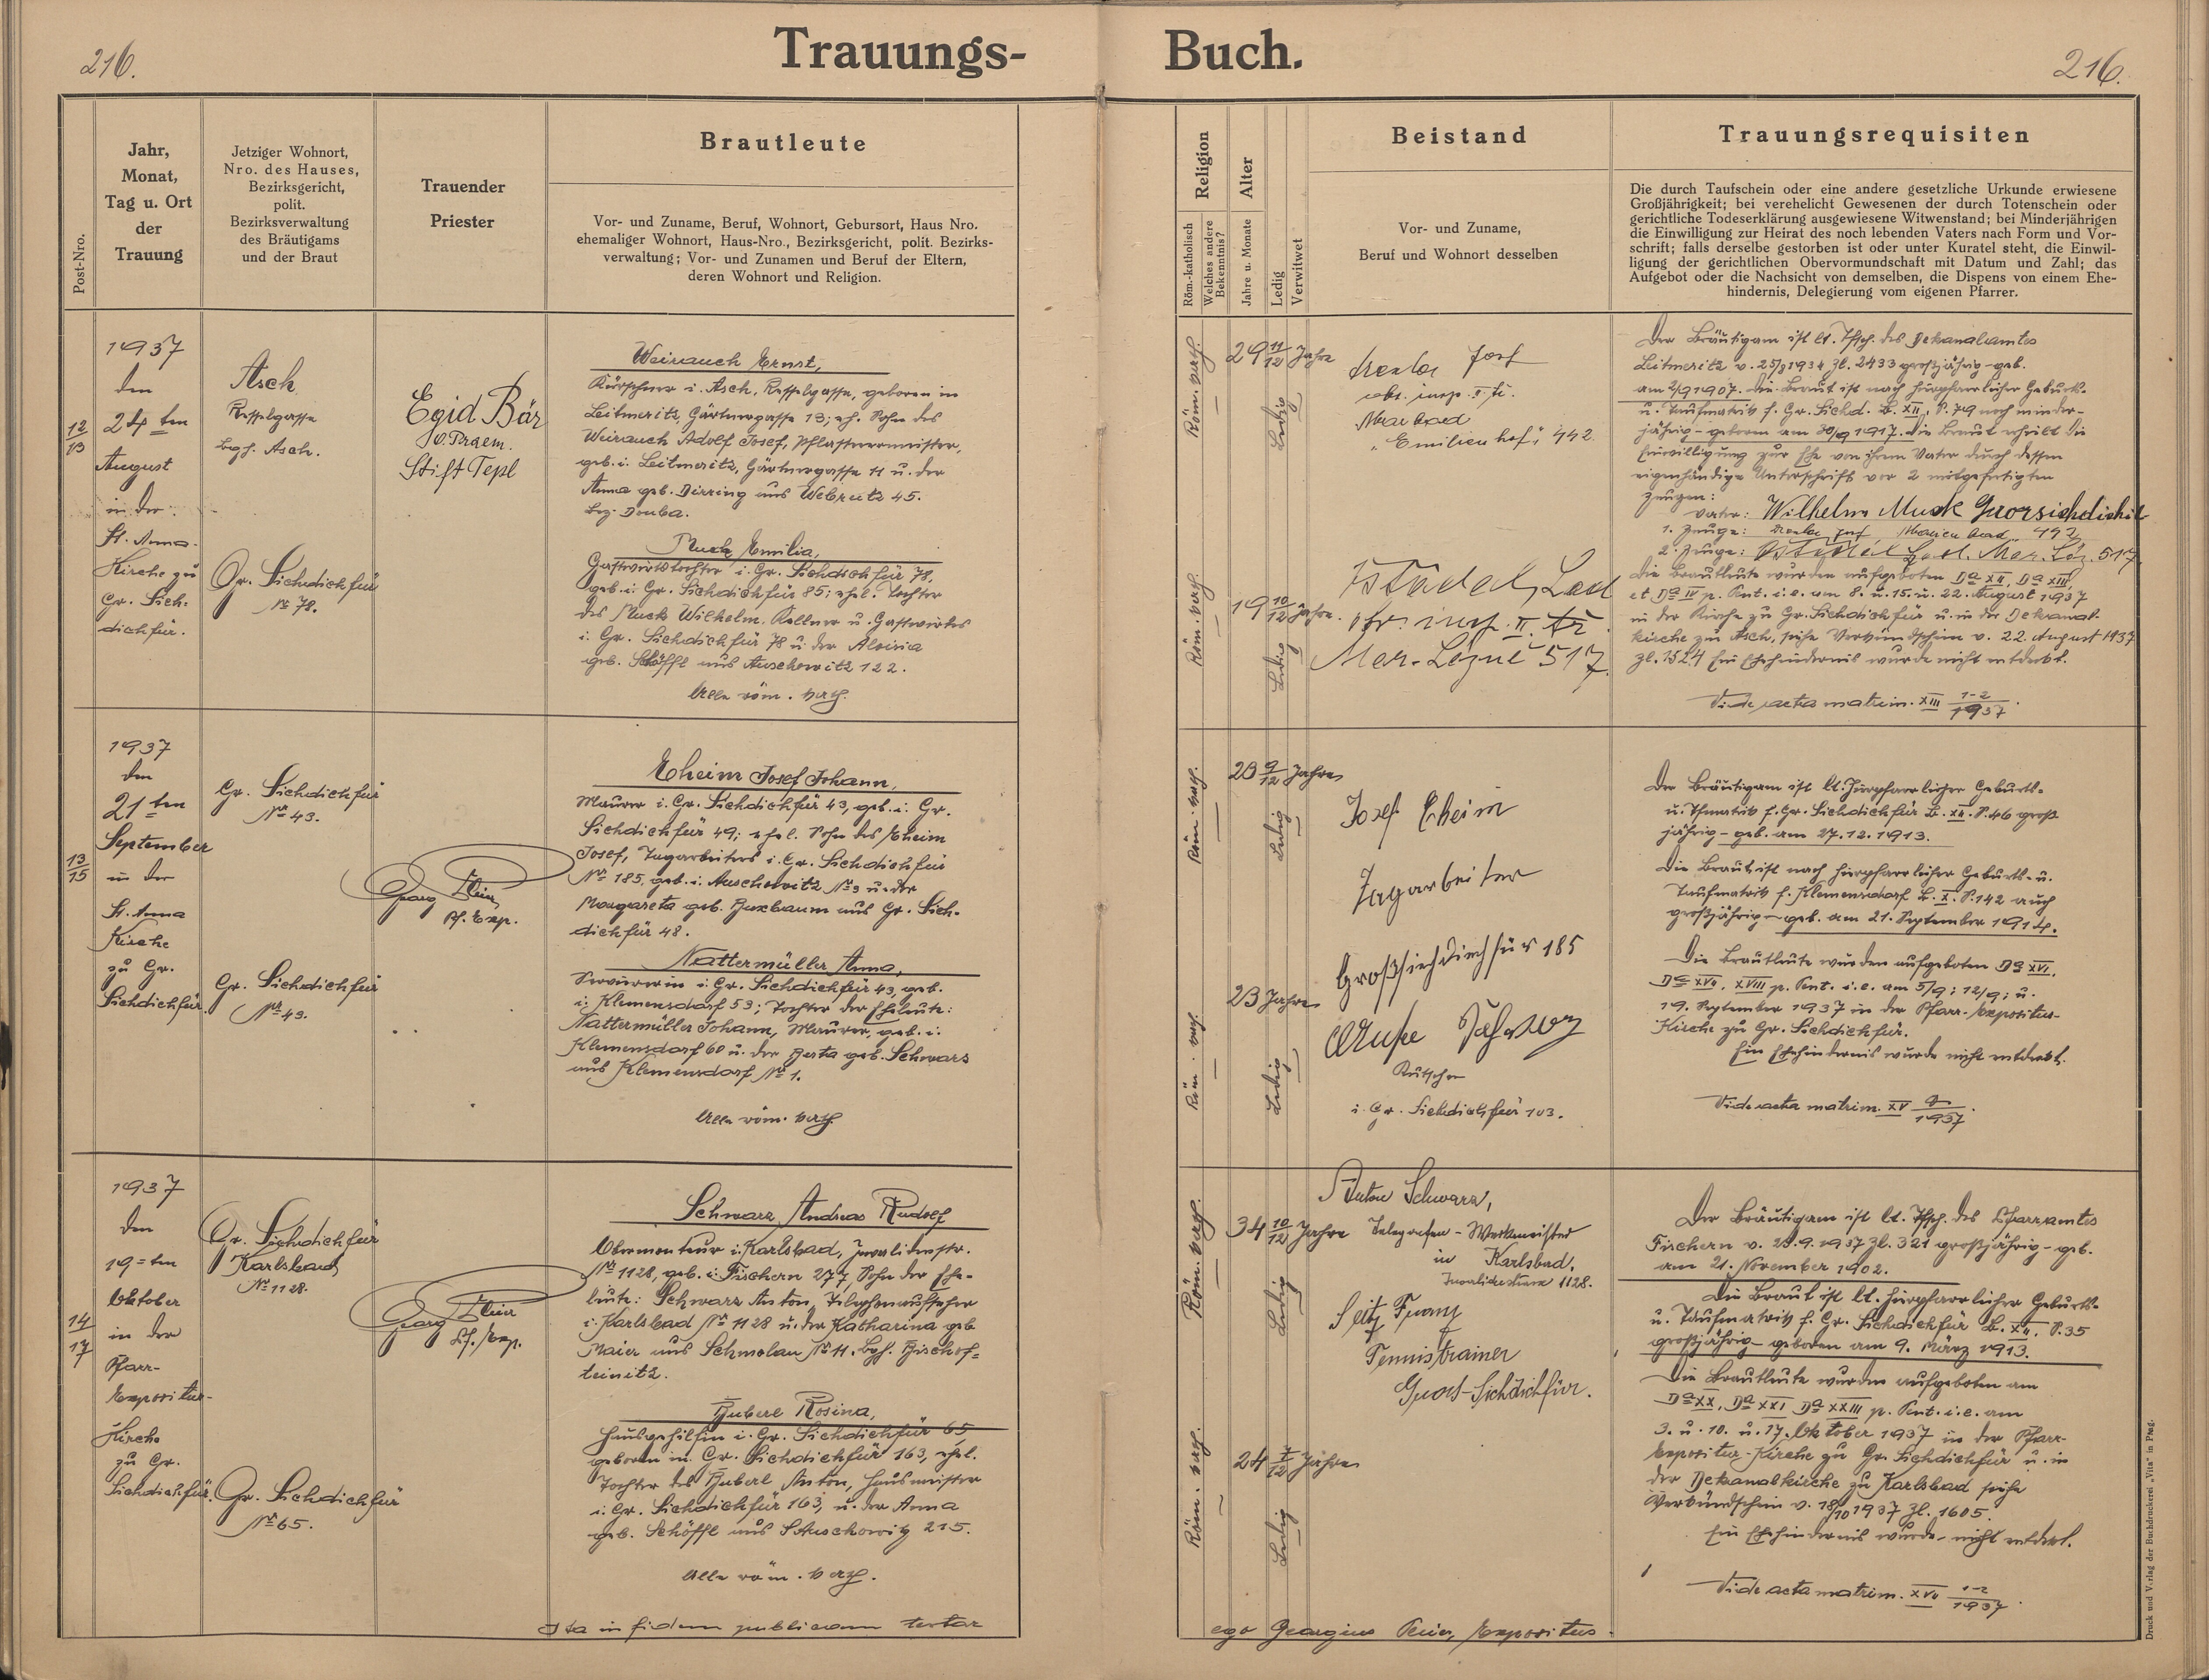 216.
Trauungs-
Buch.
216.
Post-Nro.
Jahr,
Monat,
Tag u. Ort
der
Trauung
Jetziger Wohnort,
Nro. des Hauses,
Bezirksgericht,
polit.
Bezirksverwaltung
des Bräutigams
und der Braut
Trauender
Priester
Brautleute
Vor- und Zuname, Beruf, Wohnort, Gebursort, Haus Nro.
ehemaliger Wohnort, Haus-Nro., Bezirksgericht, polit. Bezirks-
verwaltung; Vor- und Zunamen und Beruf der Eltern,
deren Wohnort und Religion.
Religion
Röm.-katholisch
Welches andere
Bekenntnis?
Alter
Jahre u. Monate
Ledig
Verwitwet
Beistand
Vor- und Zuname,
Beruf und Wohnort desselben
Trauungsrequisiten
Die durch Taufschein oder eine andere gesetzliche Urkunde erwiesene
Großjährigkeit; bei verehelicht Gewesenen der durch Totenschein oder
gerichtliche Todeserklärung ausgewiesene Witwenstand; bei Minderjährigen
die Einwilligung zur Heirat des noch lebenden Vaters nach Form und Vor-
schrift; falls derselbe gestorben ist oder unter Kuratel steht, die Einwil-
ligung der gerichtlichen Obervormundschaft mit Datum und Zahl; das
Aufgebot oder die Nachsicht von demselben, die Dispens von einem Ehe-
hindernis, Delegierung vom eigenen Pfarrer.
12/13
1937
den
24ten
August
in der
St. Anna-
Kirche zu
Gr. Sich-
dichfür.
Asch
Kesselgasse
bzh. Asch.
Gr. Sichdichfür
№ 78.
Egid Bär
O. Praem.
Stift Tepl
Weirauch Ernst,
Kürschner i. Asch, Kesselgasse, geboren in
Leitmeritz, Gärtnergasse 13; ehl. Sohn des
Weirauch Adolf Josef, Pflastermeister,
geb. i. Leitmeritz, Gärtnergasse 11 u. der
Anna geb. Dirring aus Webrutz 45.
Bez. Dauba.
Muck Emilia,
Gastwirtstochter i. Gr. Sichdichfür 78,
geb. i. Gr. Sichdichfür 85; ehel. Tochter
des Muck Wilhelm, Kellner u. Gastwirtes
i. Gr. Sichdichfür 78 u. der Aloisia
geb. Schöffl aus Auschowitz 122.
Alle röm. kath.
Röm. kath.
29 11/12 Jahre
Ledig
Josef
Marbad
"Emilienhof", 442
Röm. kath.
19 10/12 Jahre.
Ledig
Lad
insp. II. tř.
Mar. Lázně 517.
Der Bräutigam ist lt. Tfsch. des Dekanalamtes
Leitmeritz v. 25/3 1934 Zl. 2433 großjährig - geb.
am 2/9 1907. Die Braut ist nach hierpfarrlicher Geburts-
u. Taufmatrik f. Gr. Sichd. B. XII, S. 79 noch minder-
jährig - geboren am 30/9 1917. Die Braut erhielt die
Einwilligung zur Ehe von ihrem Vater durch dessen
eigenhändige Unterschrift vor 2 mitgefertigten
Zeugen:
Vater: Wilhelm Muck Grossichdichfür
1. Zeuge: Josef Marienbad 442
2. Zeuge: Lad. Mar. Láz. 517
Die Brautleute wurden aufgeboten Da XII, Da XIII,
et Da IV p. Pent. i. e. am 8. u. 15. u. 22. August 1937
in der Kirche zu Gr. Sichdichfür u. in der Dekanal-
kirche zu Asch, siehe Verkündschein v. 22. August 1937
Zl. 1524 Ein Ehehindernis wurde nicht entdeckt.
Vide acta matrim. XIII 1-2/1937.
13/15
1937
den
21ten
September
in der
St. Anna
Kirche
zu Gr.
Sichdichfür.
Gr. Sichdichfür
№ 43.
Gr. Sichdichfür
№ 43.
Georg
Pf. Exp.
Eheim Josef Johann,
Maurer i. Gr. Sichdichfür 43, geb. i. Gr.
Sichdichfür 49; ehel. Sohn des Eheim
Josef, Tagarbeiters i. Gr. Sichdichfür
№ 185, geb. i. Auschowitz № 3 u. der
Margareta geb. Buxbaum aus Gr. Sich-
dichfür 48.
Nattermüller Anna,
Serviererin i. Gr. Sichdichfür 43, geb.
i. Klemensdorf 53; Tochter der Eheleute:
Nattermüller Johann, Maurer, geb. i.
Klemensdorf 60 u. der Berta geb. Schwarz
aus Klemensdorf № 1.
Alle röm. kath.
Röm. kath.
23 9/12 Jahre
Ledig
Josef Eheim
Tagarbeiter
Großsichdichfür 185
Röm. kath.
23 Jahre
Ledig
Kutscher
i. Gr. Sichdichfür 103.
Der Bräutigam ist lt. hierpfarrlicher Geburts-
u. Tfmatrik f. Gr. Sichdichfür B. XII. S. 46 groß
jährig - geb. am 27.12.1913.
Die Braut ist nach hierpfarrlicher Geburts- u.
Taufmatrik f. Klemensdorf B. X. S. 142 auch
großjährig - geb. am 21. September 1914.
Die Brautleute wurden aufgeboten Da XVI,
Da XVII, XVIII p. Pent. i. e. am 5/9; 12/9; u.
19. September 1937 in der Pfarr-Expositur-
Kirche zu Gr. Sichdichfür.
Ein Ehehindernis wurde nicht entdeckt.
Vide acta matrim. XV
1937.
14/17
1937
den
19=ten
Oktober
in der
Pfarr-
Expositur-
Kirche
zu Gr.
Sichdichfür.
Gr. Sichdichfür
Karlsbad
№ 1128.
Gr. Sichdichfür
№ 65.
Georg
Pf. Exp.
Schwarz Andreas Rudolf
Obermonteur i. Karlsbad, Invalidenstr.
№ 1128, geb. i. Fischern 277, Sohn der Ehe-
leute: Schwarz Anton, Telephonaufseher
i. Karlsbad № 1128 u. der Katharina geb.
Maier aus Schmolau № 11. Bzh. Bischof-
teinitz.
Huberl Rosina,
Hausgehilfin i. Gr. Sichdichfür 65,
geboren in Gr. Sichdichfür 163, ehel.
Tochter des Huberl Anton, Hausmeister
i. Gr. Sichdichfür 163, u. der Anna
geb. Schöffl aus Auschowitz 215.
Alle röm. kath.
Röm. kath.
34 10/12 Jahre
Ledig
Anton Schwarz,
Telegrafen-Werkmeister
in Karlsbad,
Invalidenstrasse 1128.
Seitz Franz
Tennistrainer
Gross-Sichdichfür.
Röm. kath.
24 7/12 Jahre
Ledig
Der Bräutigam ist lt. Tfsch. des Pfarramtes
Fischern v. 29.9.1937 Zl. 321 großjährig - geb.
am 21. November 1902.
Die Braut ist lt. hierpfarrlicher Geburts-
u. Taufmatrik f. Gr. Sichdichfür B. XII. S. 35
großjährig - geboren am 9. März 1913.
Die Brautleute wurden aufgeboten am
Da XX, Da XXI Da XXIII p. Pent. i. e. am
3. u. 10. u. 17. Oktober 1937 in der Pfarr-
Expositur-Kirche zu Gr. Sichdichfür u. in
der Dekanalkirche zu Karlsbad siehe
Verkündschein v. 18/10 1937 Zl. 1605.
Ein Ehehindernis wurde nicht entdeckt.
Vide acta matrim. XVII 1-2/1937.
Ita in fidem publicam testor
ego Georgius Expositus.
Druck und Verlag der Buchdruckerei „Vita" in Prag.